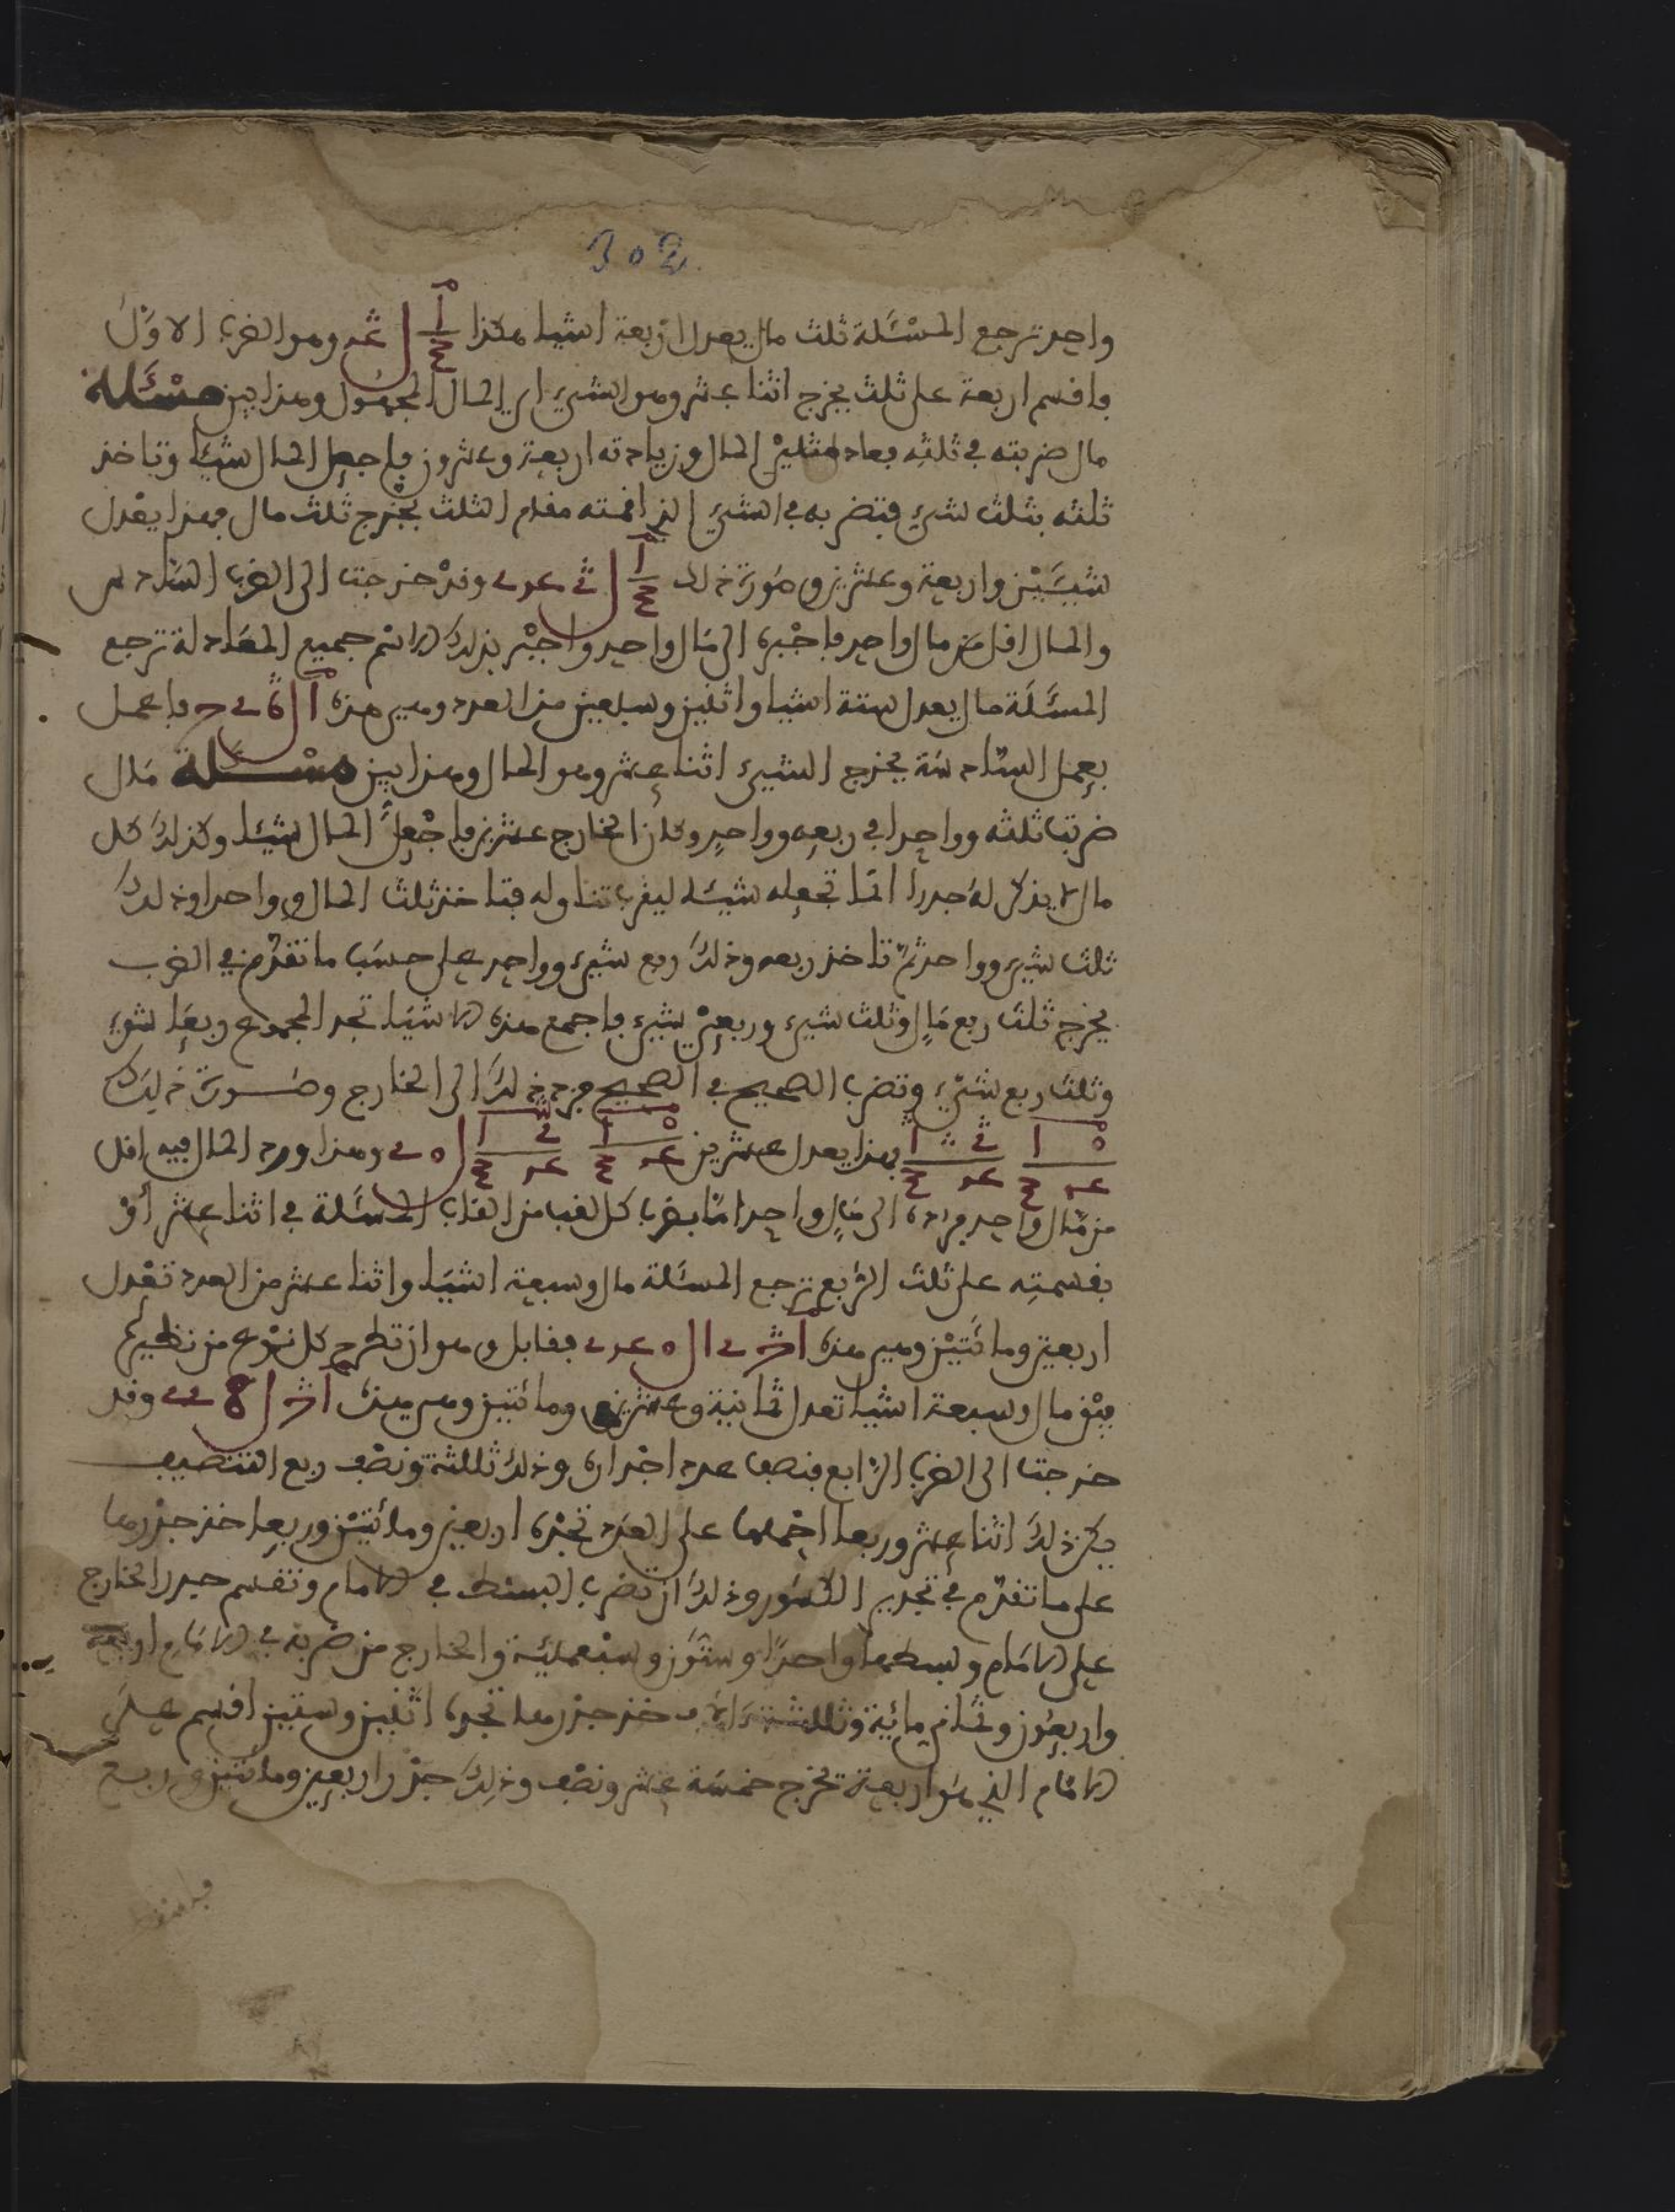 302
واحد ترجع المسئلة ثلث مال يعدل اربعة اشيا هكذا وهو الضرب الاول
فاقسم اربعة على ثلث يخرج اثنا عشر وهو الشيء اي المال المجهول وهذا بين مسئلة
مال ضربته في ثلثه فعاد مثلي المال وزيادته اربعة وعشرون فاجعل المال شيئا وتاخذ
ثلثه بثلث شيء فتضربه في الشيء الذي اقمته مقام الثلث يخرج ثلث مال فهذا يعدل
شيئين واربعة وعشرين وصورة ذلك وقد خرجت الى الضرب السادس
والمال اقل من مال واحد فاجبره الى مال واحد واجبر بذلك الاسم جميع المعادلة ترجع
المسئلة مال يعدل ستة اشيا واثنين وسبعين من العدد وهي هذه فاعمل
بعمل السادسة يخرج الشيء اثنا عشر وهو المال وهذا بين مسئلة مال
ضربت ثلثه وواحدا في ربعه وواحد وكان الخارج عشرين فاجعل المال شيئا وكذلك كل
مال لا يذكر له جذرا انما تجعله شيئا ليقرب تناوله فتاخذ ثلث المال وواحدا وذلك
ثلث شيء وواحد ثم تاخذ ربعه وذلك ربع شيء وواحد على حسب ما تقدم في الضرب
يخرج ثلث ربع مال وثلث شيء وربع شيء فاجمع هذه الاشيا تجد المجموع ربعا شيء
وثلث ربع شيء وتضرب الصحيح في الصحيح فزد ذلك الى الخارج وصورة ذلك
فهذا يعدل عشرين وهذا ورد المال فيه اقل
من مال واحد فرده الى مال واحد اما بضرب كل لقب من القاب المسئلة في اثنا عشر أو
بقسمته على ثلث الربع ترجع المسئلة مال وسبعة اشيا واثنا عشر من العدد تعدل
اربعين ومائتين وهي هذه فقابل وهو ان تطرح كل نوع من نظيره
يبق مال وسبعة اشيا تعدل ثمانية وعشرين ومائتين وهي هذه وقد
خرجت الى الضرب الرابع فنصف عدد اجذاره وذلك ثلثة ونصف ربع التنصيف
يكن ذلك اثنا عشر وربعا احملها على العدد تجده اربعين ومائتين وربعا خذ جذرها
على ما تقدم في تجذير الكسور وذلك ان تضرب البسط في الامام وتقسم جذر الخارج
على الامام وبسطها واحدا وستون وتسعمئة والخارج من ضربه في الامام اربعة
واربعون وثماني مائة وثلثة الاف خذ جذرها تجده اثنين وستين اقسم على
الامام الذي هو اربعة تخرج خمسة عشر ونصف وذلك جذر اربعين ومائتين وربع